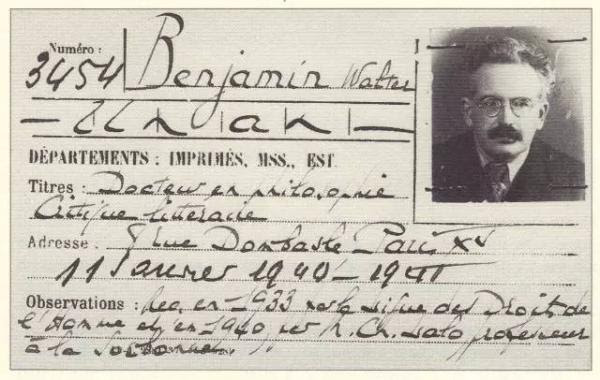 Numéro :
3454 Benjamin Walter
— Un | an | —
DÉPARTEMENTS : IMPRIMÉS, MSS., EST.
Titres : Docteur en philosophie
Critique littéraire
Adresse : rue Dombasle Paris XV
11 Janvier 1940 – 1941
Observations : Rec. en 1933 par la Ligue des Droits de
l'Homme et en 1940 par professeur
à la Sorbonne.